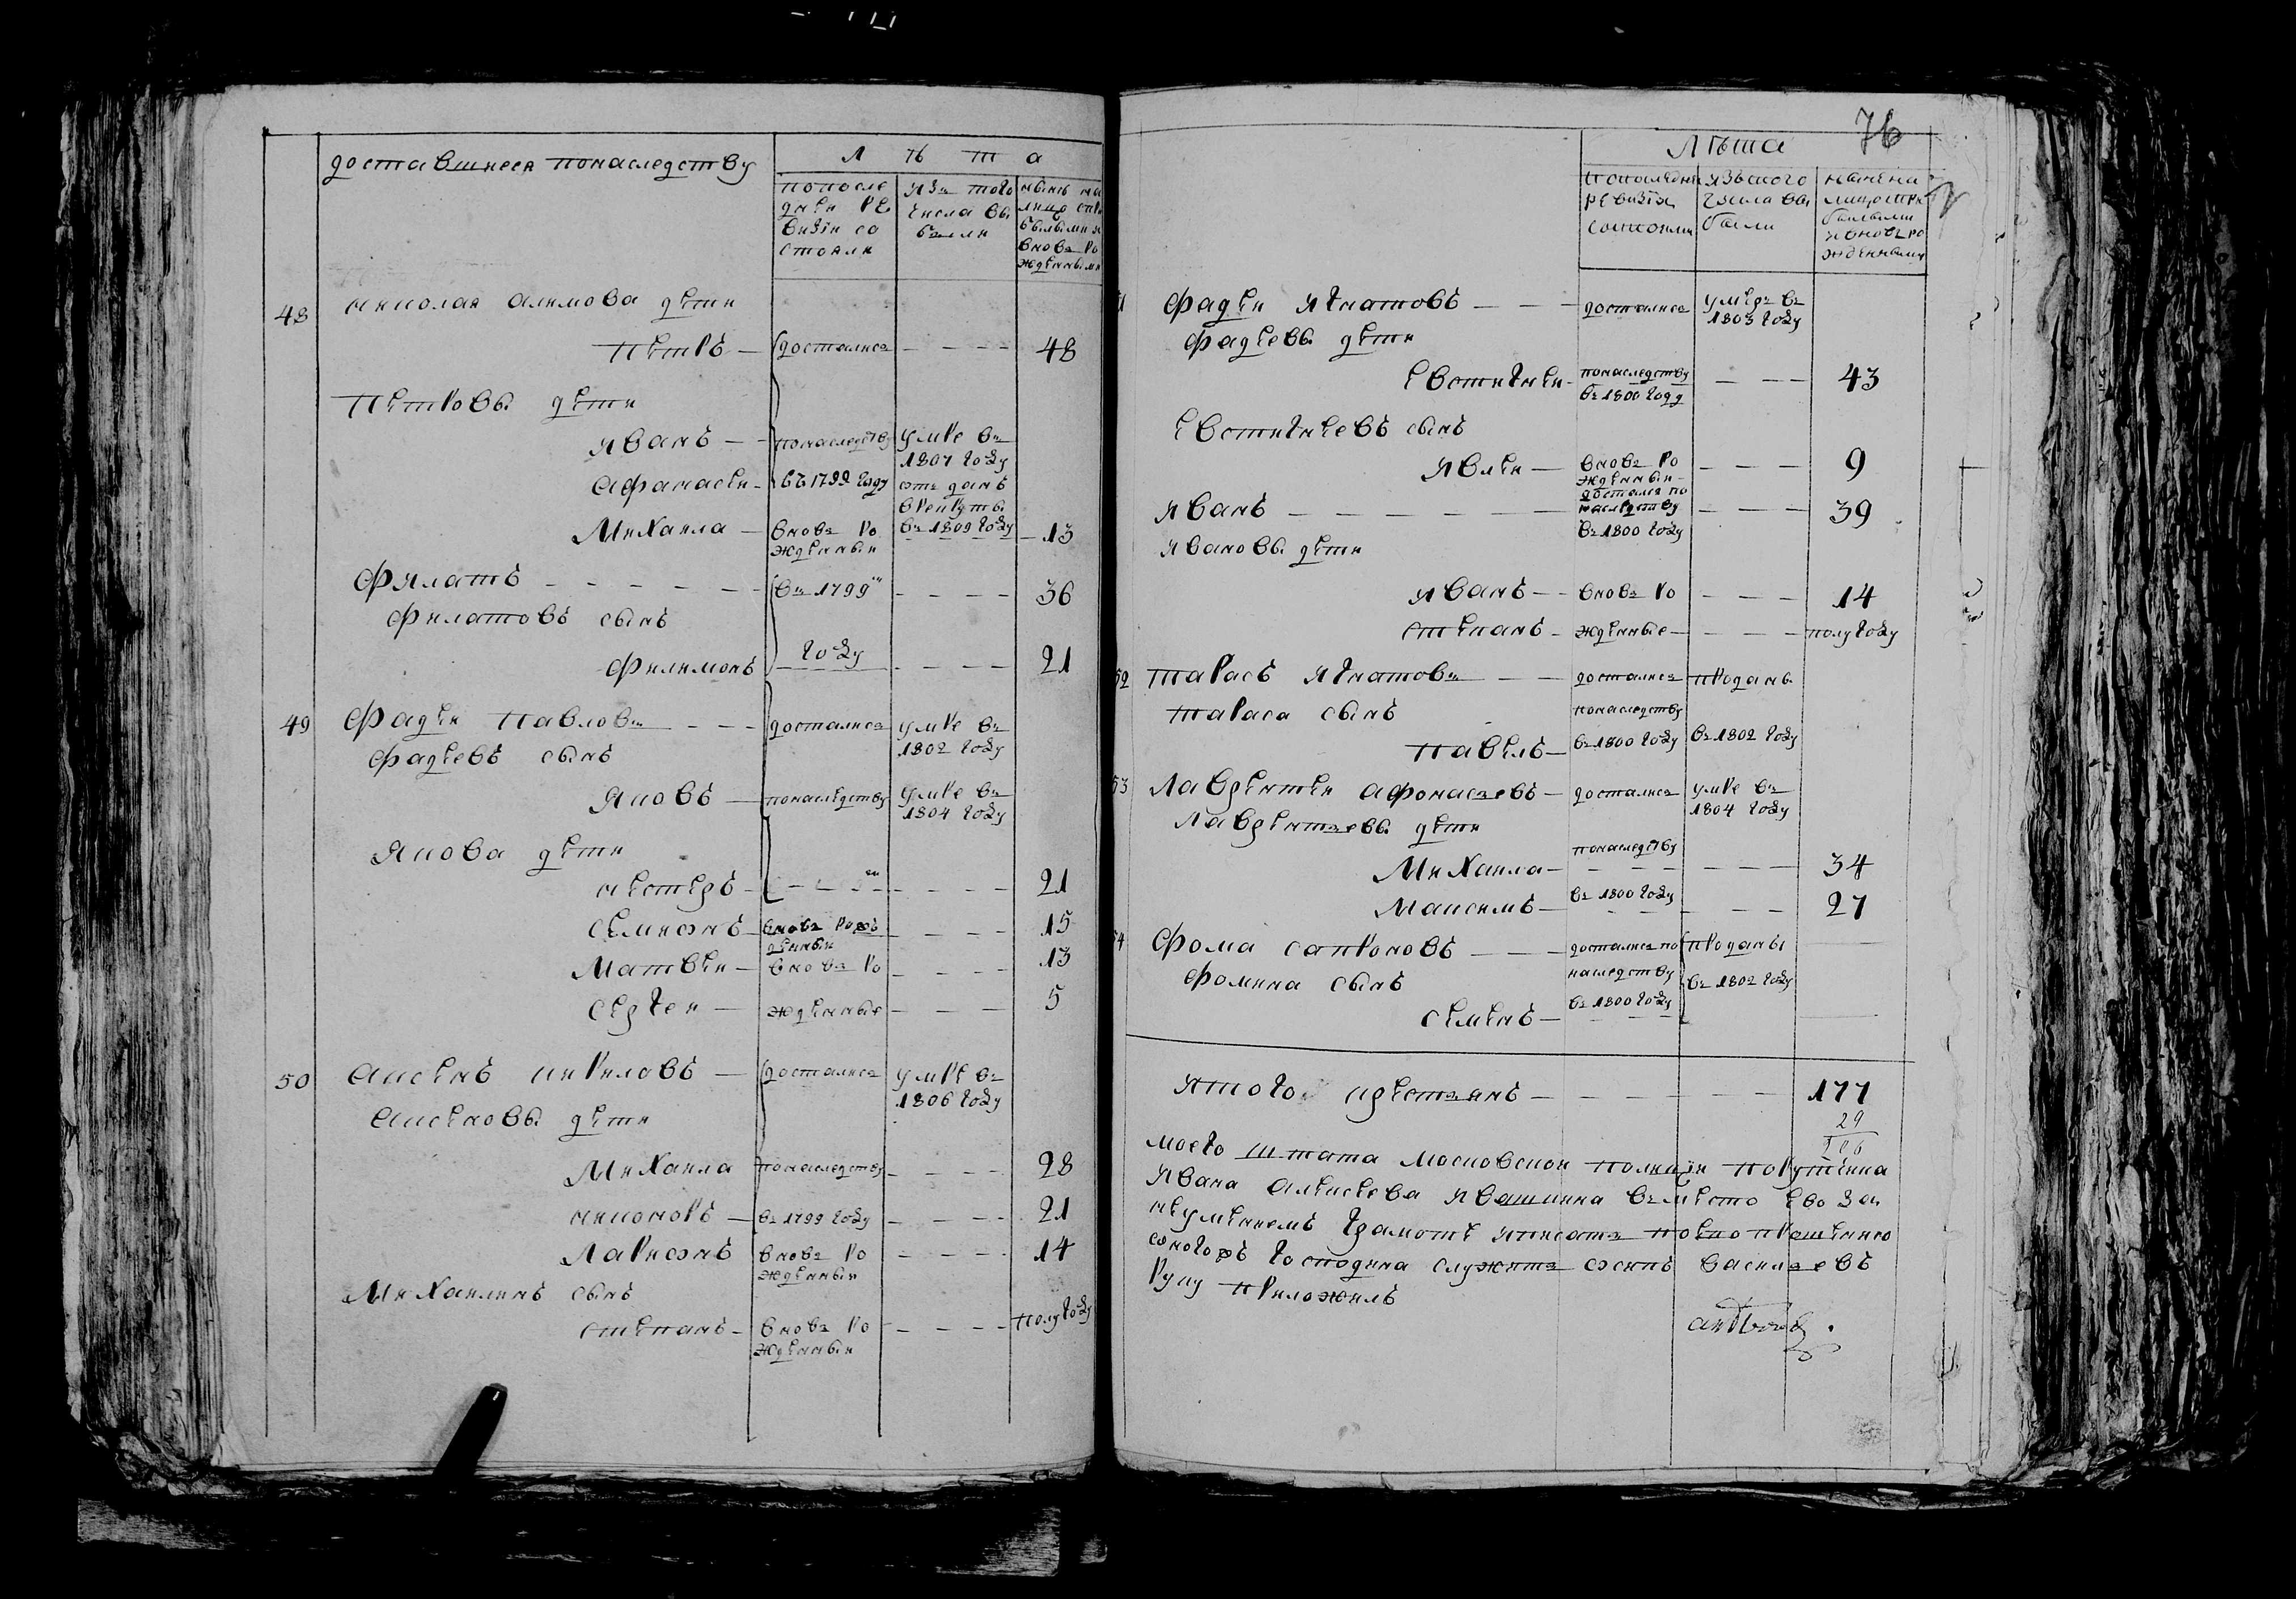 доставшиеся понаследству
Л ѣ т а
попосле дней ре визiи со стояли
изъ того числа вы были
ныне на лицо сп вновь ро жденными
48 николая акимова дети
Петръ — досталися — — — 48
Петровы дети
Иванъ — понаследству умре въ 1807 году
Афанасей — въ 1799 году отъ данъ в рекруты
Михаила — вновь ро жденный въ 1809 году — 13
Филатъ — — въ 1799 — — — 36
Филатовъ сынъ
Филимонъ году — — — 21
49 Фадей Павловъ — — досталися умре въ 1802 году
Фадеевъ сынъ
Яковъ — понаследству умре въ 1804 году
Якова дети
нестеръ — — — — 21
Семионъ — вновь рож денный — — — 15
Матвей — вновь ро — — — 13
Сергей — жденные — — — 5
50 Аксенъ Кириловъ — досталися умре въ 1806 году
Аксеновы дети
Михаила понаследству — — — 28
никоноръ — въ 1799 году — — — 21
Ларионъ вновь ро жденный — — — 14
Михаилинъ сынъ
степанъ — вновь ро жденный — — — полугоду
76
Лѣта
попоследней ревизiи состояли
изъ того числа вы были
ныне на лицо и вновь ро жденными
Фадей Игнатовъ — — досталися умеръ въ 1803 году
Фадеевы дети
Евстигней — понаследству въ 1800 году — — — 43
Евстигнеевъ сынъ
Ивлей — вновь ро жденный — — — 9
Иванъ — — — достался по наследству въ 1800 году — — — 39
Ивановы дети
Иванъ — вновь ро — — — 14
степанъ — жденные — — — полугоду
52 тарасъ Игнатовъ — — досталися проданы
тараса сынъ понаследству
Павелъ — въ 1800 году въ 1802 году
53 Лаврентей Афонасьевъ — досталися умре въ 1804 году
Лаврентьевы дети
Михаила — понаследству — — — 34
Максимъ — въ 1800 году — — — 27
54 Фома сапроновъ — — досталися по наследству проданы
Фомина сынъ въ 1802 году
семенъ — въ 1800 году
Итого крестьянъ — — — 177
29
моего штата московской полиции порутчика
Ивана Алексеева Ивашкина въместо ево за
неумениемъ грамоте и писать по ево прошению
оногожъ господина служитель осипъ васильевъ
руку приложилъ